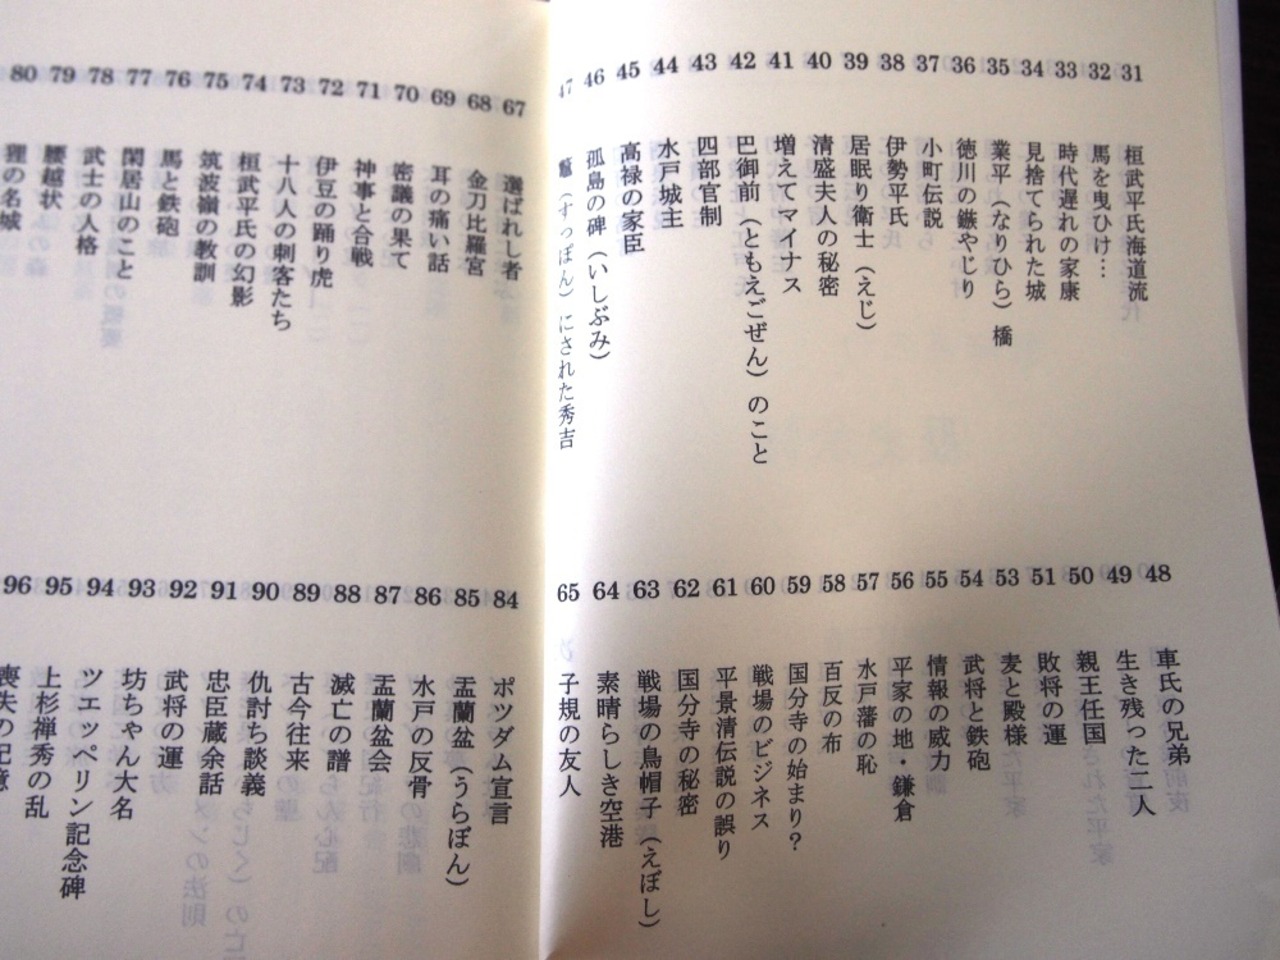 31 桓武平氏海道流
32 馬を曳ひけ…
33 時代遅れの家康
34 見捨てられた城
35 業平（なりひら）橋
36 徳川の鏃やじり
37 小町伝説
38 伊勢平氏
39 居眠り衛士（えじ）
40 清盛夫人の秘密
41 増えてマイナス
42 巴御前（ともえごぜん）のこと
43 四部官制
44 水戸城主
45 高禄の家臣
46 孤島の碑（いしぶみ）
47 （すっぽん）にされた秀吉
48 車氏の兄弟
49 生き残った二人
50 親王任国
51 敗将の運
53 麦と殿様
54 武将と鉄砲
55 情報の威力
56 平家の地・鎌倉
57 水戸藩の恥
58 百反の布
59 国分寺の始まり？
60 戦場のビジネス
61 平景清伝説の誤り
62 国分寺の秘密
63 戦場の烏帽子（えぼし）
64 素晴らしき空港
65 子規の友人
67 選ばれし者
68 金刀比羅宮
69 耳の痛い話
70 密議の果て
71 神事と合戦
72 伊豆の踊り虎
73 十八人の刺客たち
74 桓武平氏の幻影
75 筑波嶺の教訓
76 馬と鉄砲
77 閑居山のこと
78 武士の人格
79 腰越状
80 狸の名城
84 ポツダム宣言
85 盂蘭盆（うらぼん）
86 水戸の反骨
87 盂蘭盆会
88 滅亡の譜
89 古今往来
90 仇討ち談義
91 忠臣蔵余話
92 武将の運
93 坊ちゃん大名
94 ツエッペリン記念碑
95 上杉禅秀の乱
96 喪失の記憶